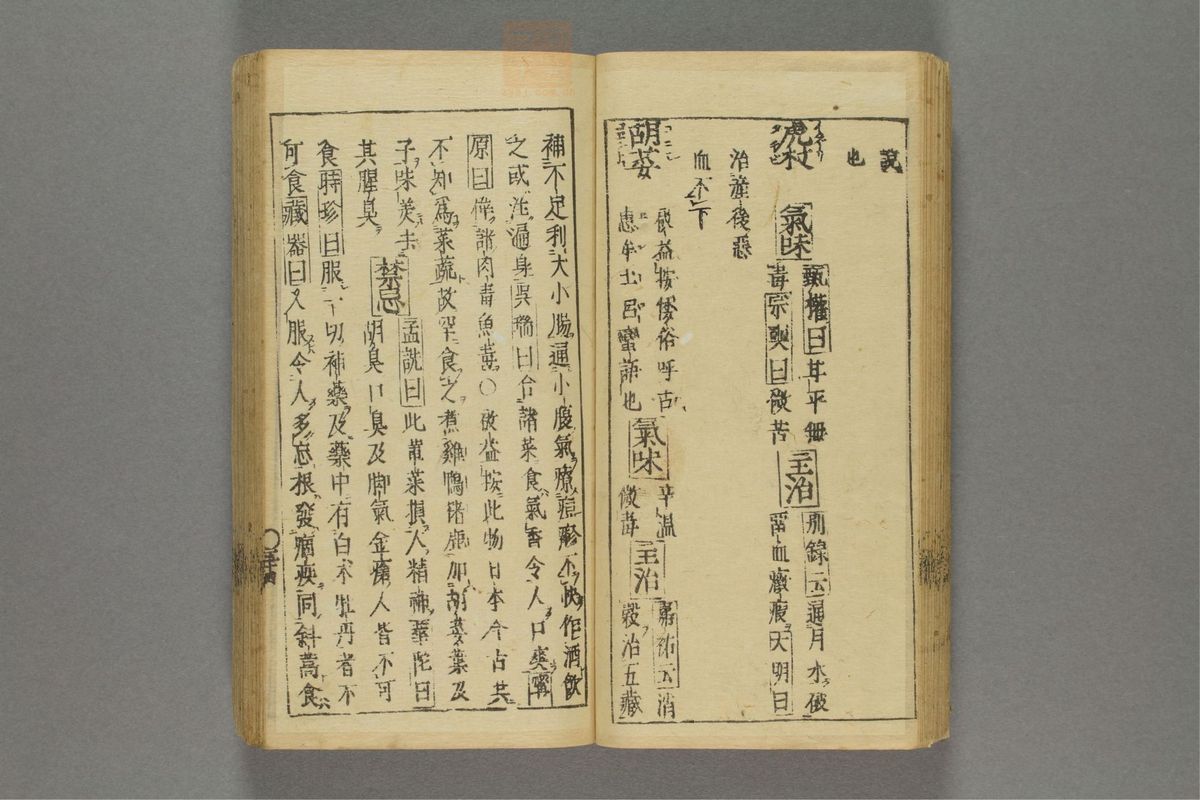 說
也
虎杖
氣味
甄權曰甘平無
毒宗奭曰微苦
主治
別錄云通月水破
畱血癥瘕大明曰
治產後惡
血不下
胡荽
啟益按倭俗呼古
惠牟士呂蠻語也
氣味
辛温
微毒
主治
嘉祐云消
穀治五藏
補不足利大小腸通小腹氣療痘疹不快作酒飲
之或注遍身吳瑞曰合諸菜食氣香令人口爽寧
原曰偉諸肉毒魚毒〇啟益按此物日本今古共
不知爲菜蔬故罕食之煮雞鴨猪鹿加胡荽葉及
子味美去
其腥臭
禁忌
孟詵曰此葷菜損人精神華陀曰
胡臭口臭及脚氣金瘡人皆不可
食時珍曰服一切補藥及藥中有白朮牡丹者不
可食藏器曰久服令人多忘根發痼疾同斜蒿食
〇三十四